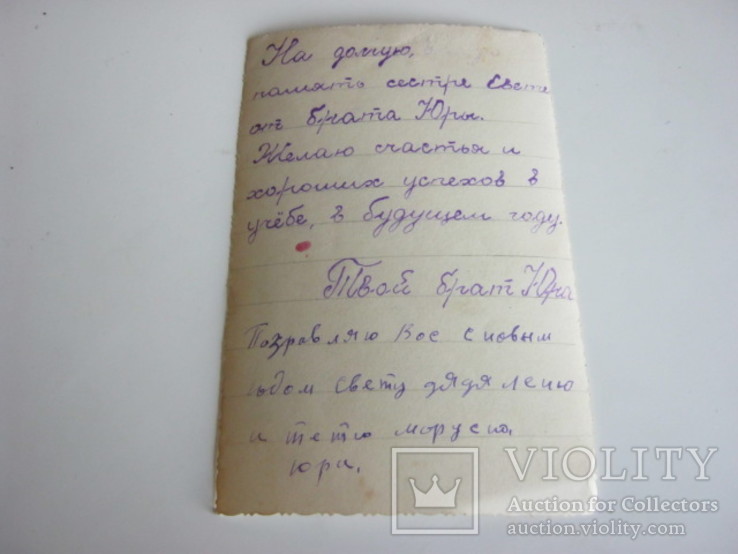 На долгую,
память сестре Свете
от брата Юры.
Желаю счастья и
хороших успехов в
учёбе, в будущем году.
Твой брат Юра
Поздровляю Вос с новым
годом свету дядя леню
и тетю морусю,
юра.
VIOLITY
Auction for Collectors
auction.violity.com